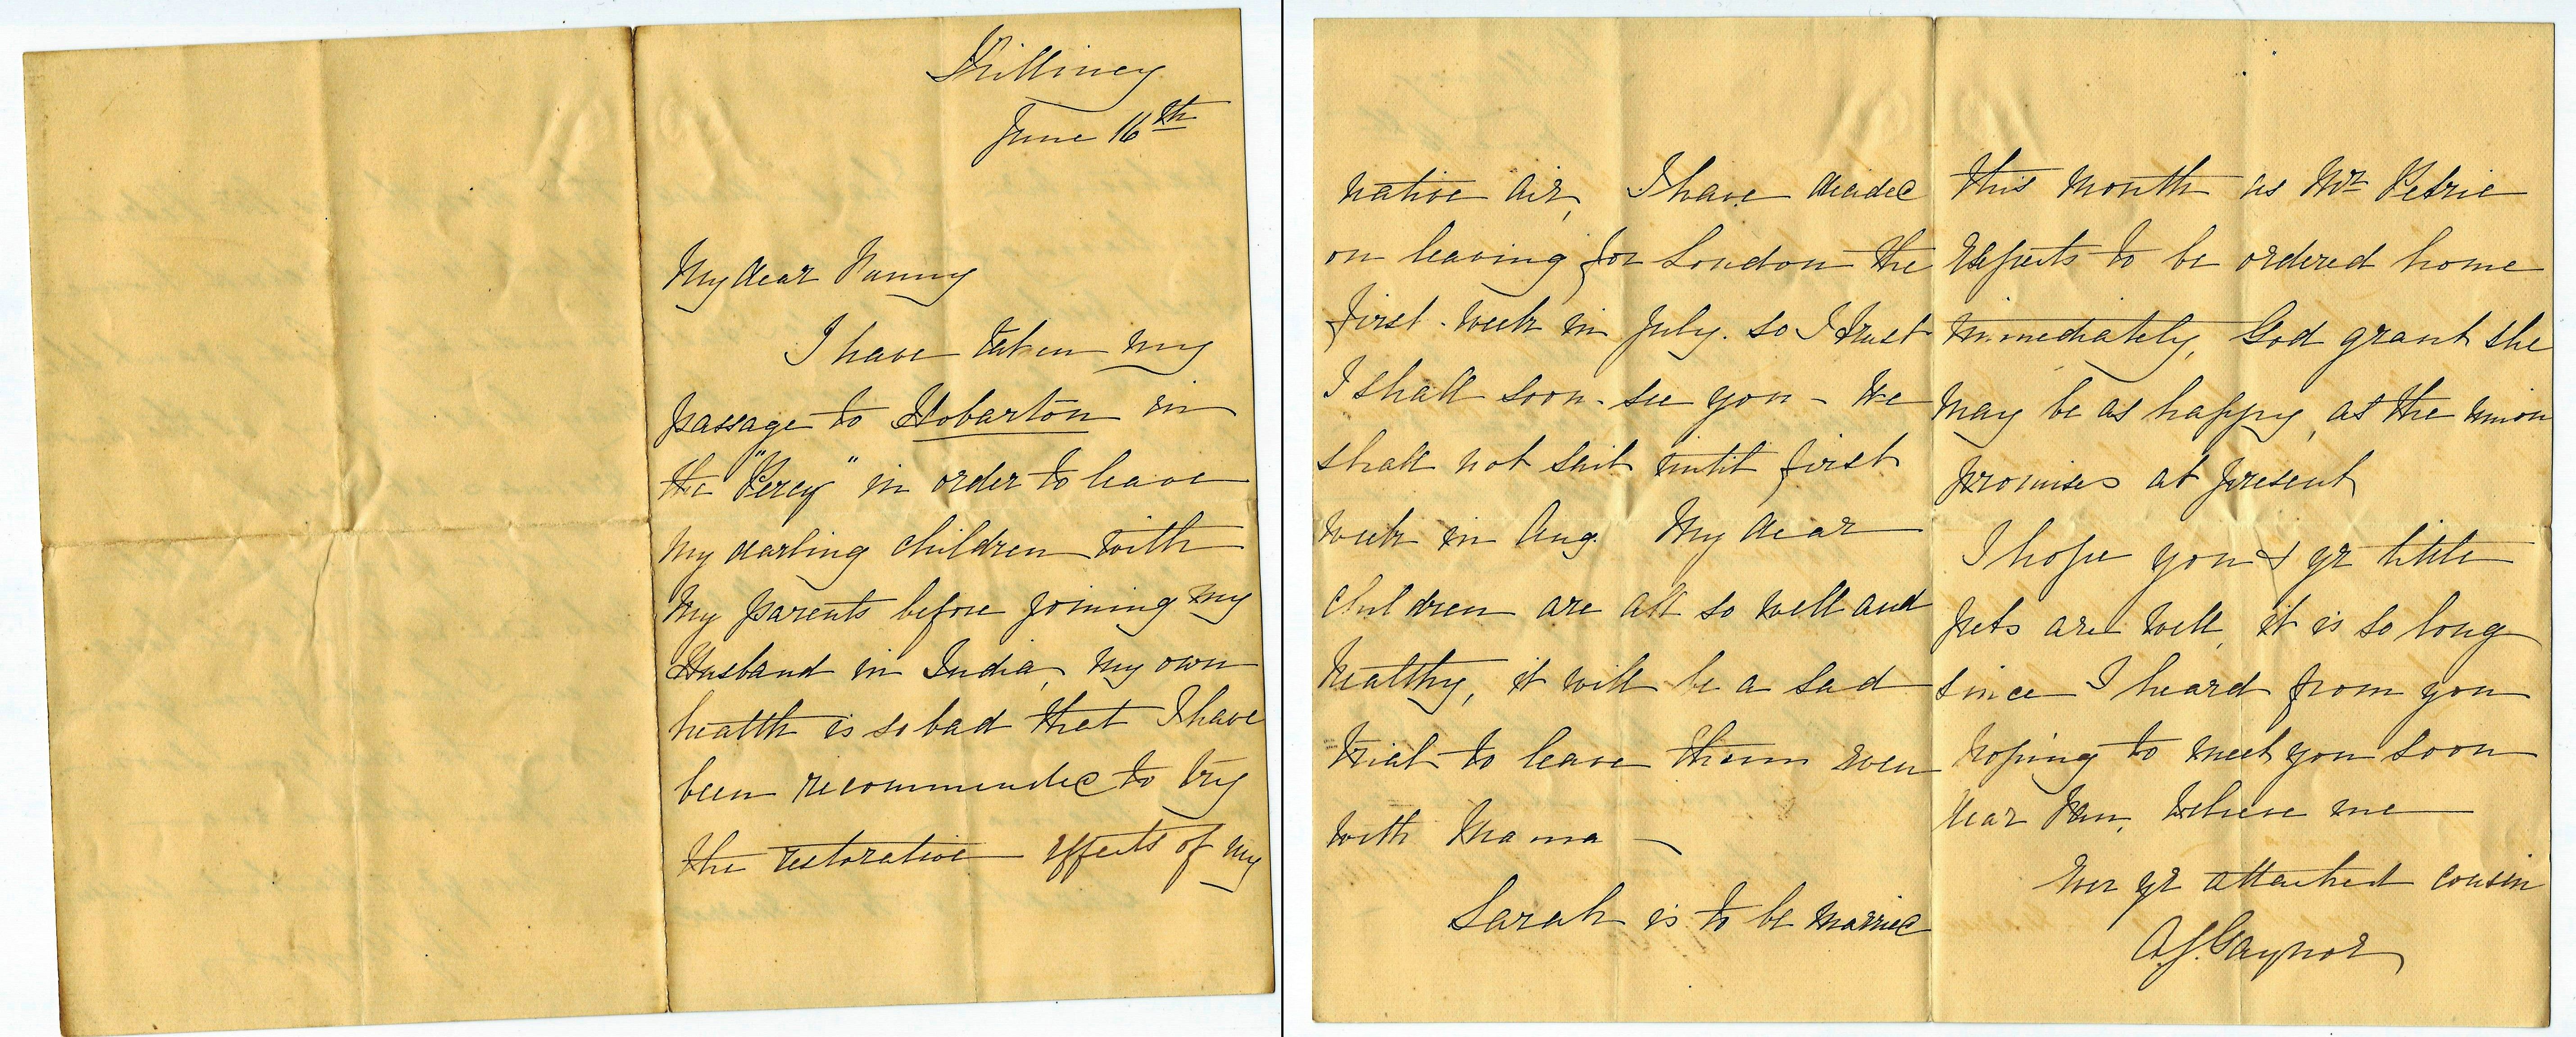 Killiney
June 16th
My dear Fanny
I have taken my
passage to Hobarton in
the "Percy" in order to leave
my darling children with
my parents before joining my
Husband in India, my own
health is so bad that I have
been recommended to try
the restorative effects of my
native air, I have decided
on leaving for London the
first week in July. so I trust
I shall soon see you - We
shall not sail until first
week in Aug. My dear
children are all so well and
healthy, it will be a sad
trial to leave them even
with Mama -
Sarah is to be married
this month as Mr Petrie
expects to be ordered home
immediately, God grant she
may be as happy, as the union
promises at present
I hope you & yr little
pets are well, it is so long
since I heard from you
hoping to meet you soon
dear Fan, believe me
Ever yr attached cousin
A.J. Gaynor